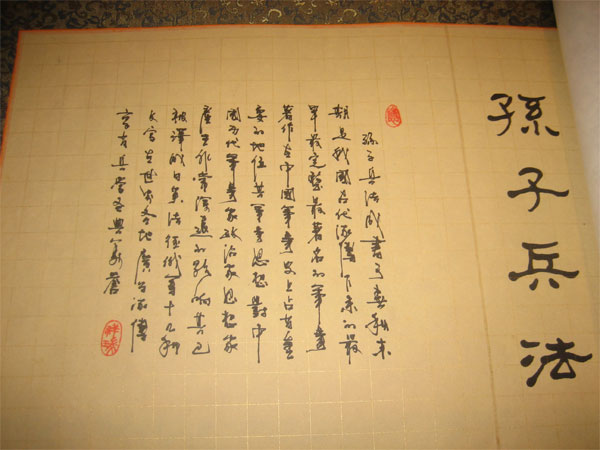 孫子兵法
孫子兵法成書于春秋末
期是我國古代流傳下來的最
早最完整最著名的軍事
著作在中國軍事史上占有重
要的地位其軍事思想對中
國历代軍事家政治家思想家
產生非常深遠的影响其已
被譯成日英法德俄等十几種
文字在世界各地廣为流傳
享有兵學圣典美誉